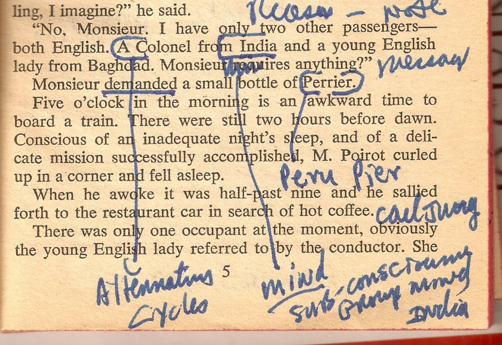 ling, I imagine?” he said.
“No, Monsieur. I have only two other passengers—
both English. A Colonel from India and a young English
lady from Baghdad. Monsieur requires anything?”
Monsieur demanded a small bottle of Perrier.
Five o’clock in the morning is an awkward time to
board a train. There were still two hours before dawn.
Conscious of an inadequate night’s sleep, and of a deli-
cate mission successfully accomplished, M. Poirot curled
up in a corner and fell asleep.
Peru Pier
When he awoke it was half-past nine and he sallied
forth to the restaurant car in search of hot coffee.
Carl Jung
There was only one occupant at the moment, obviously
the young English lady referred to by the conductor. She
5
Alternating
Cycles
mind
Sub-conscious
Group mind
India